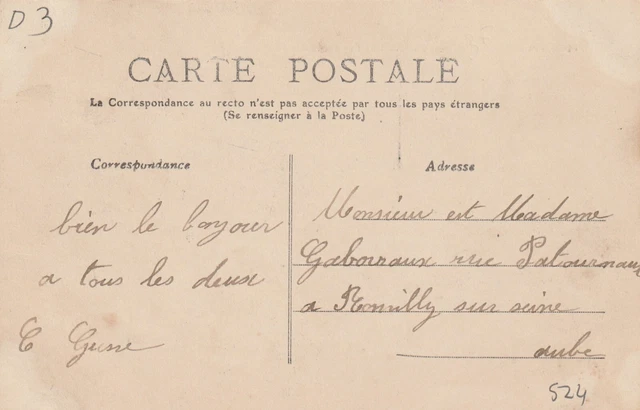 D 3
CARTE POSTALE
La Correspondance au recto n'est pas acceptée par tous les pays étrangers
(Se renseigner à la Poste)
Correspondance
bien le bonjour
a tous les deux
Adresse
Monsieur est Madame
rue
a Romilly sur seine
aube
524